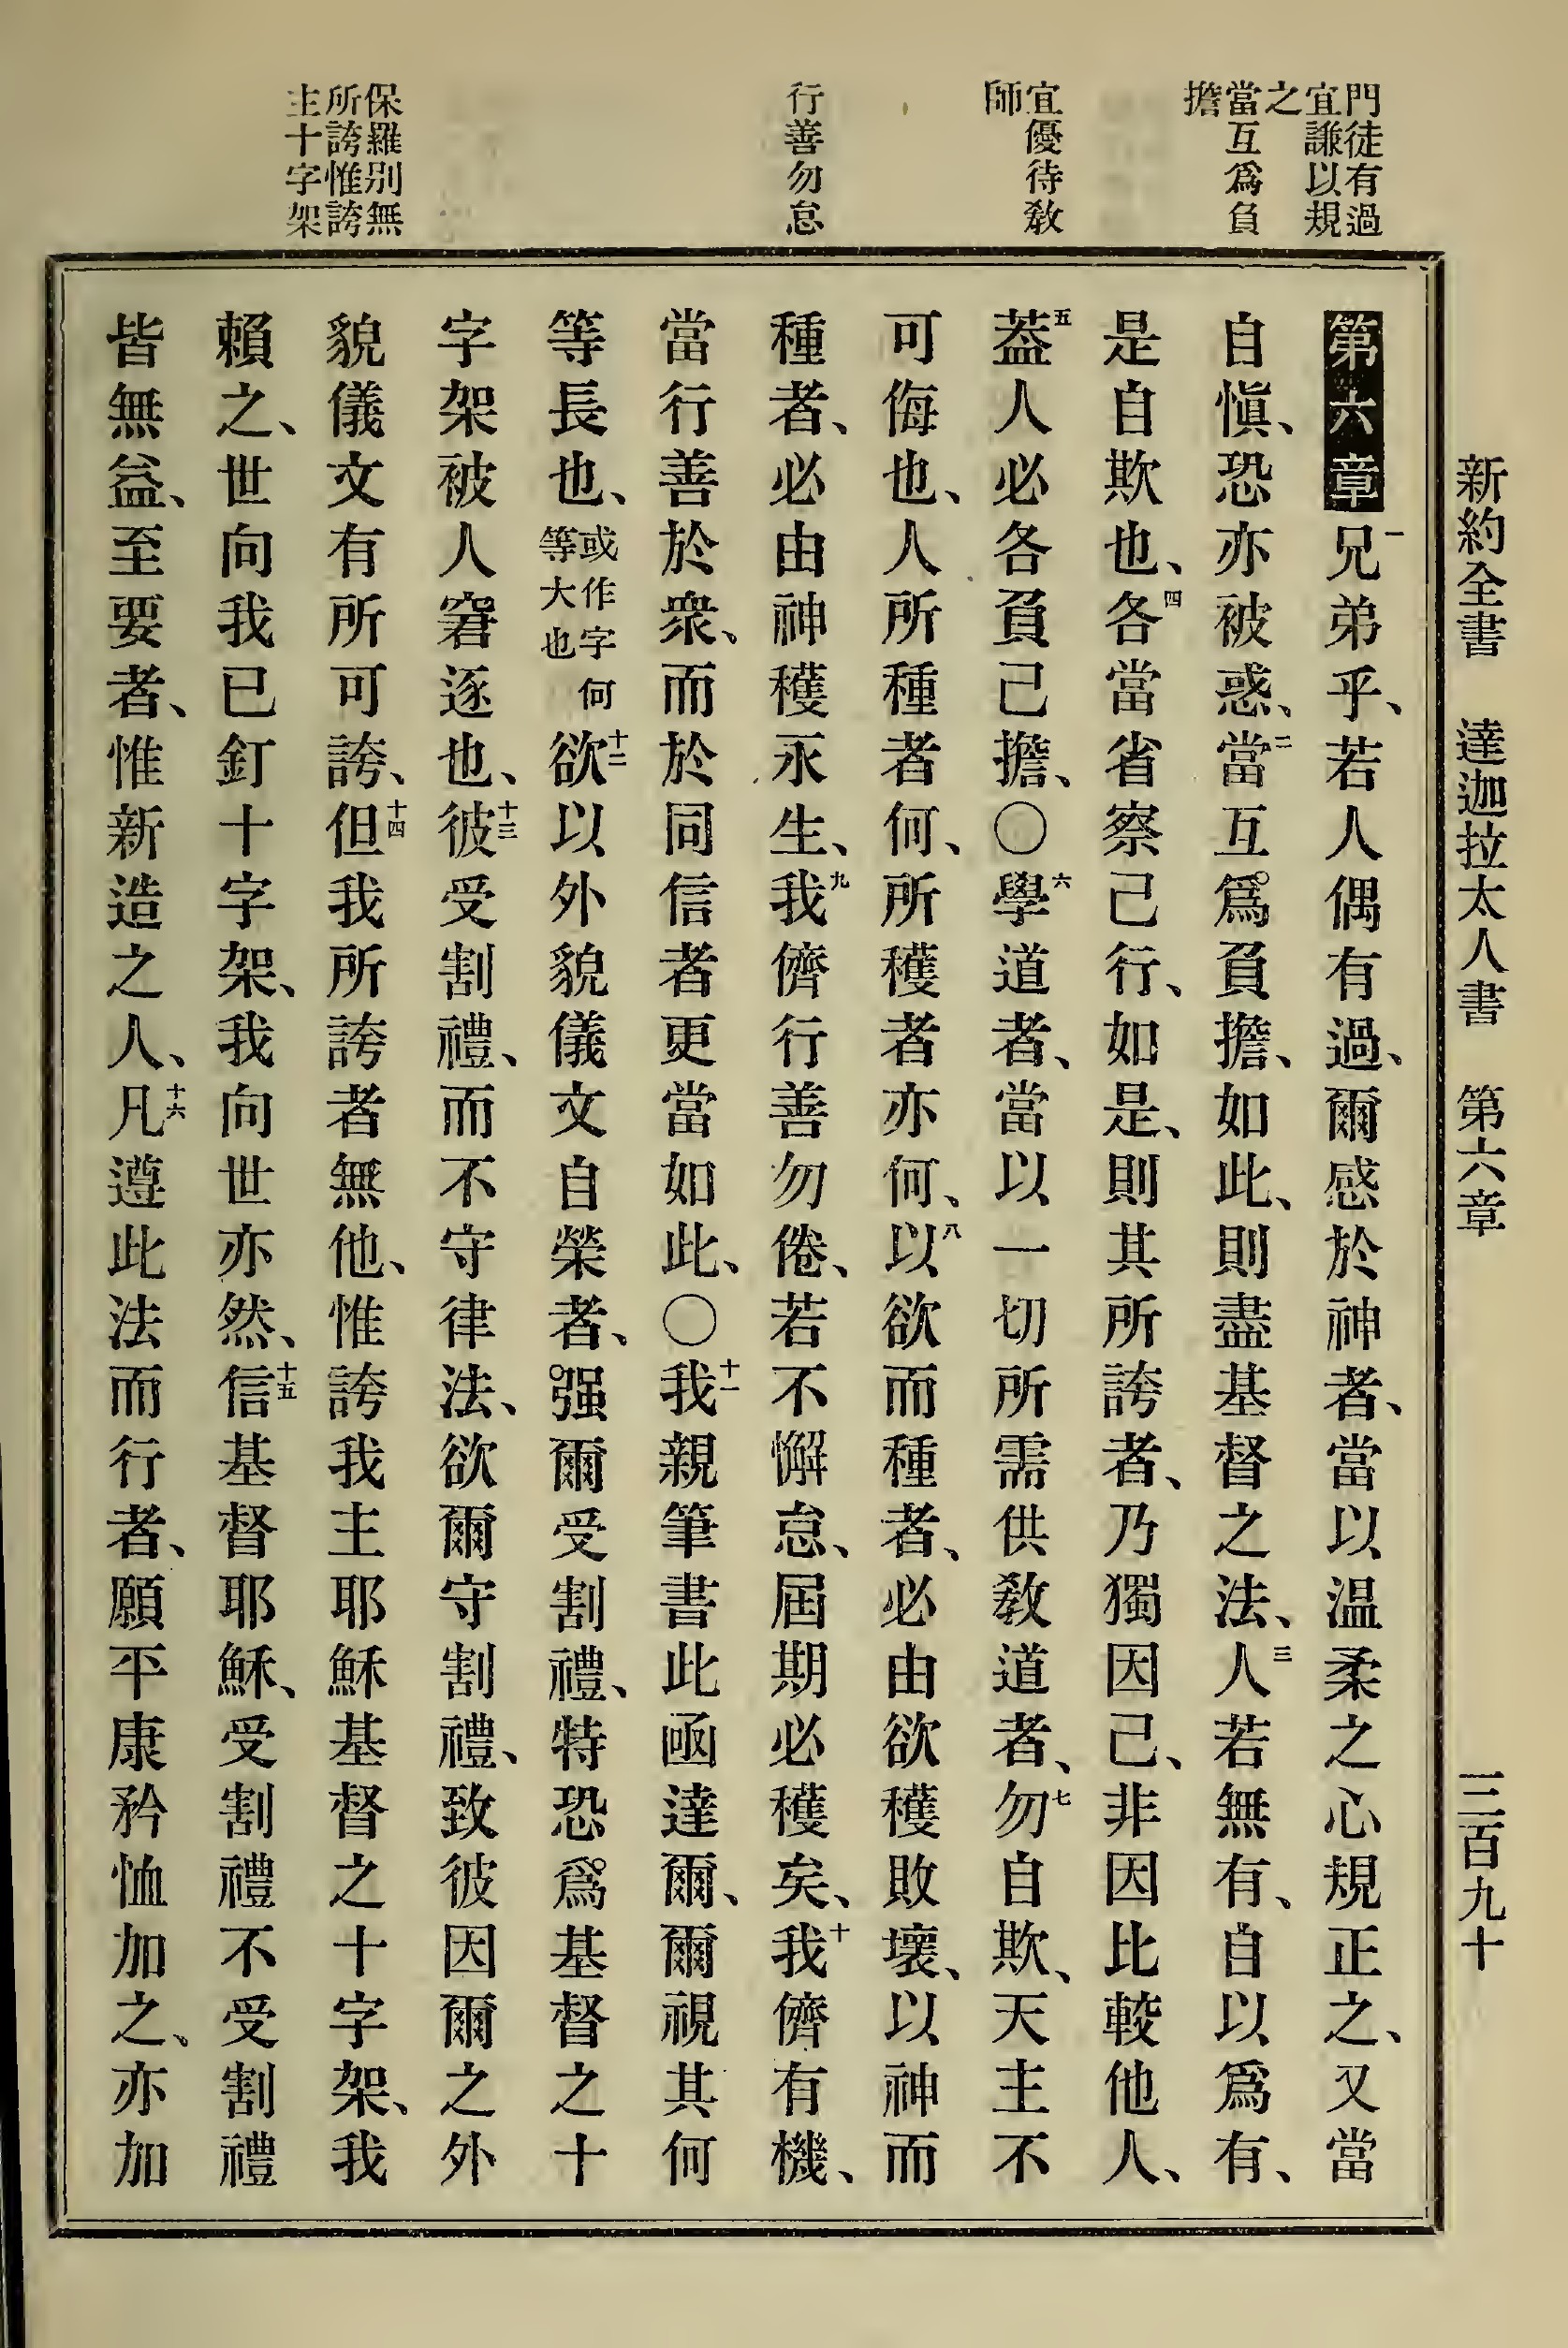 新約全書 達迦拉太人書 第六章 三百九十
門徒有過
宜謙以規
之
當互爲負
擔
宜優待敎
師
行善勿怠
保羅别無
所誇惟誇
主十字架
第六章 一兄弟乎、若人偶有過、爾感於神者、當以温柔之心規正之、又當
自愼、恐亦被惑、二當互爲負擔、如此、則盡基督之法、三人若無有、自以爲有、
是自欺也、四各當省察己行、如是、則其所誇者、乃獨因己、非因比較他人、
五葢人必各負己擔、○六學道者、當以一切所需供敎道者、七勿自欺、天主不
可侮也、人所種者何、所穫者亦何、八以欲而種者、必由欲穫敗壞、以神而
種者、必由神穫永生、九我儕行善勿倦、若不懈怠、屆期必穫矣、十我儕有機、
當行善於衆、而於同信者更當如此、○十一我親筆書此函達爾、爾視其何
等長也、或作字何等大也 十二欲以外貌儀文自榮者、强爾受割禮、特恐爲基督之十
字架被人窘逐也、十三彼受割禮、而不守律法、欲爾守割禮、致彼因爾之外
貌儀文有所可誇、十四但我所誇者無他、惟誇我主耶穌基督之十字架、我
賴之、世向我已釘十字架、我向世亦然、十五信基督耶穌、受割禮不受割禮
皆無益、至要者、惟新造之人、十六凡遵此法而行者、願平康矜恤加之、亦加